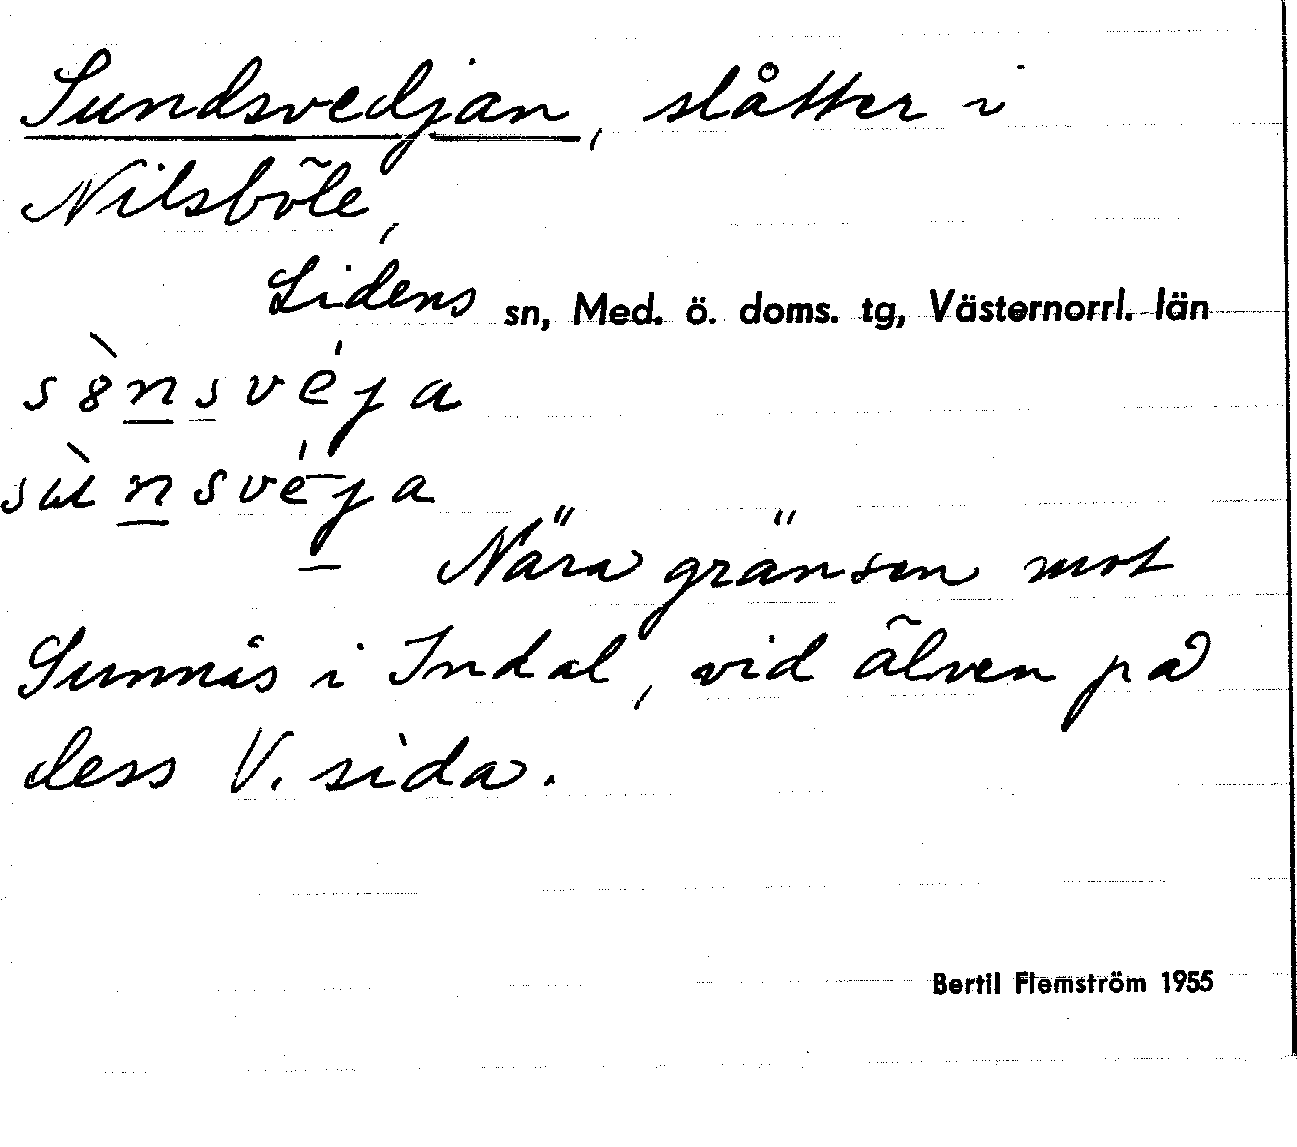 Sundsvedjan, slåtter i
Nilsböle,
Lidens sn, Med. ö. doms. tg, Västernorrl. län
sə̀nsvéja
sùnsvéja
Nära gränsen mot
Sunnås i Indal, vid älven på
dess V. sida.
Bertil Flemström 1955